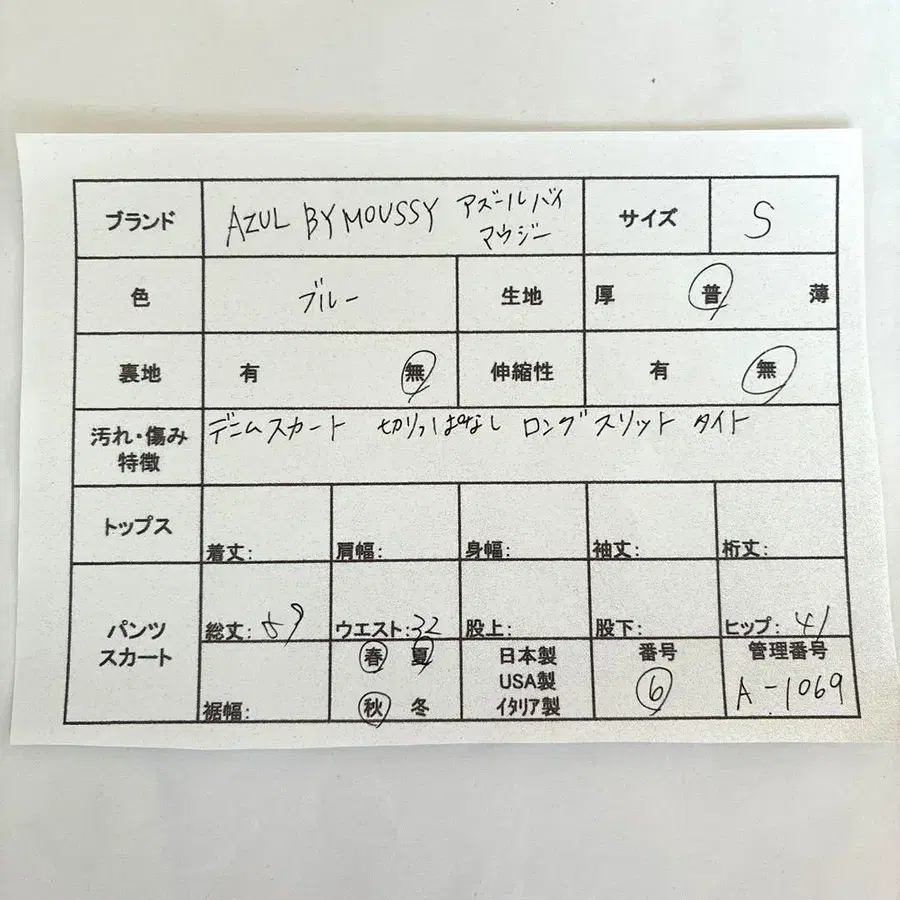 ブランド AZUL BY MOUSSY アズールバイ サイズ S
マウジー
色 ブルー 生地 厚 普 薄
裏地 有 無 伸縮性 有 無
汚れ・傷み デニムスカート 切りっぱなし ロングスリット タイト
特徴
トップス 着丈: 肩幅: 身幅: 袖丈: 裄丈:
パンツ
スカート
総丈: ウエスト:32 股上: 股下: ヒップ:41
裾幅: 春 夏 日本製 番号 管理番号
USA製 6 A-1069
秋 冬 イタリア製